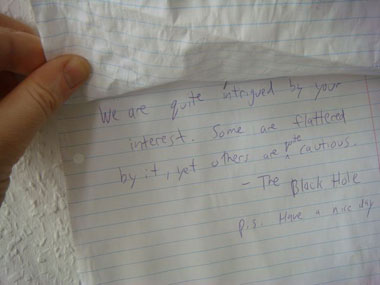 We are quite intrigued by your
interest. Some are flattered
by it, yet others are quite cautious.
- The Black Hole
p.s. Have a nice day